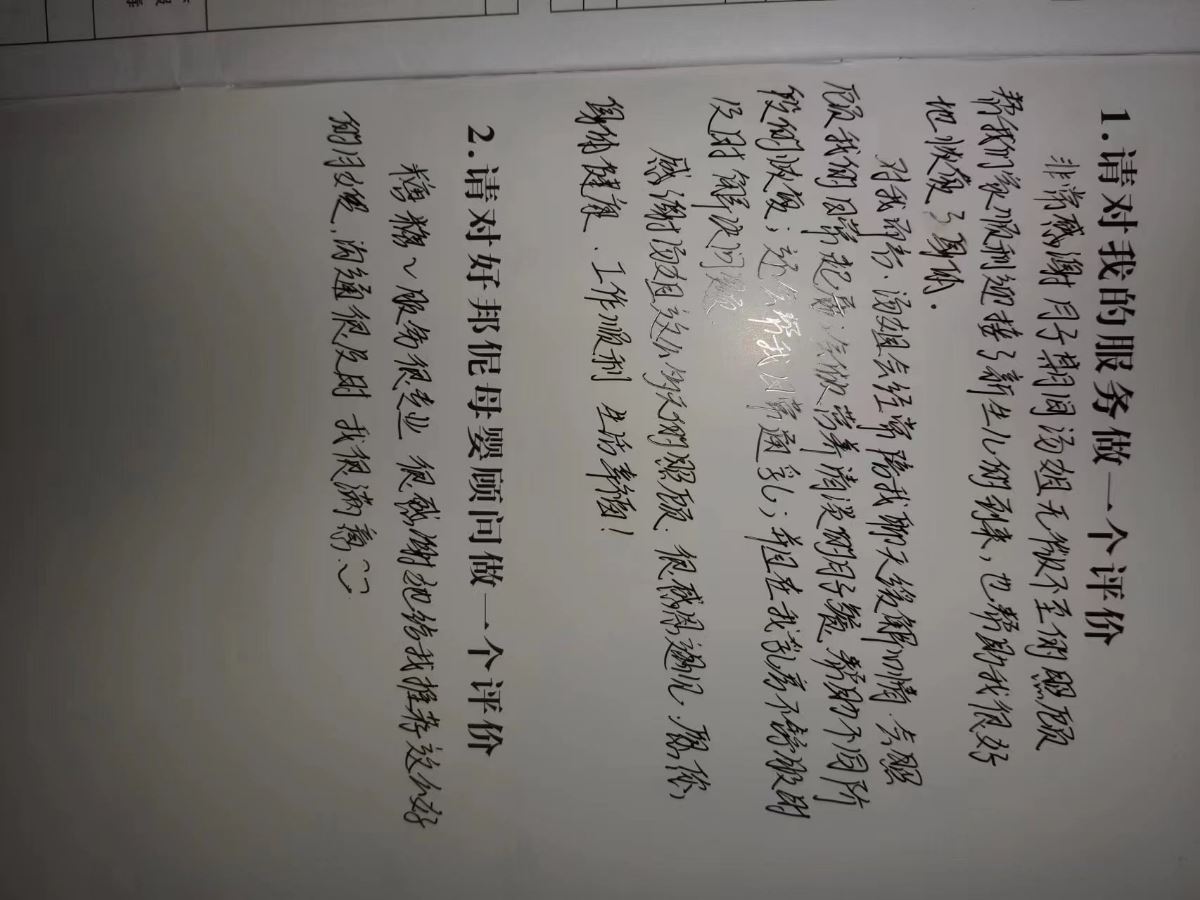 1.请对我的服务做一个评价
非常感谢月子期间汤姐无微不至的照顾
帮我们家顺利迎接了新生儿的到来，也帮助我很好
地恢复了身体.
对我而言、汤姐会经常陪我聊天缓解心情、会照
顾我的日常起居；会做营养清淡的月子餐，帮助不同阶
段的恢复；还会帮我日常通乳；并且在我乳房不舒服时
及时解决问题
感谢汤姐这么多天的照顾.很感恩遇见.愿你，
身体健康、工作顺利 生活幸福！
2.请对好邦伲母婴顾问做一个评价
糖糖～服务很专业 很感谢她给我推荐这么好
的月嫂，沟通很及时 我很满意